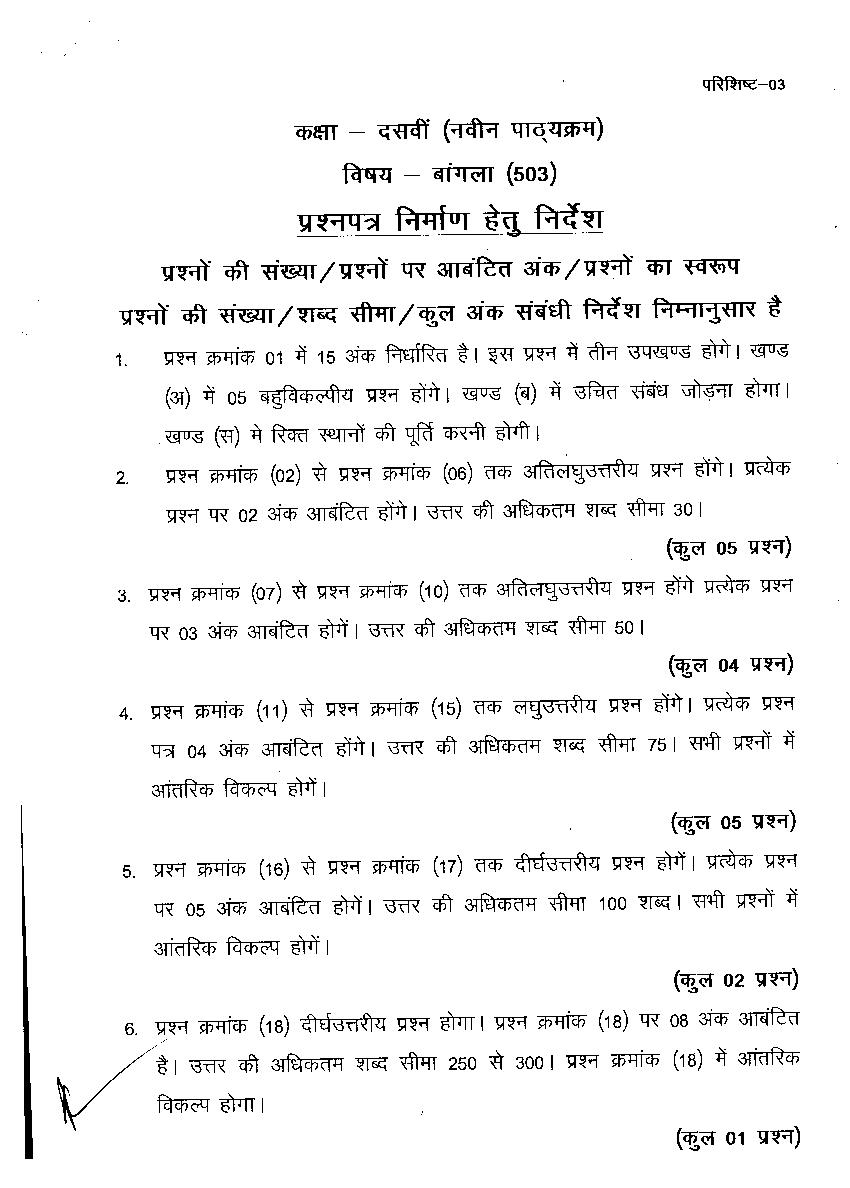 परिशिष्ट–03
कक्षा – दसवीं (नवीन पाठ्यक्रम)
विषय – बांगला (503)
प्रश्नपत्र निर्माण हेतु निर्देश
प्रश्नों की संख्या/प्रश्नों पर आबंटित अंक/प्रश्नों का स्वरूप
प्रश्नों की संख्या/शब्द सीमा/कुल अंक संबंधी निर्देश निम्नानुसार है
1. प्रश्न क्रमांक 01 में 15 अंक निर्धारित है। इस प्रश्न में तीन उपखण्ड होगे। खण्ड
(अ) में 05 बहुविकल्पीय प्रश्न होंगे। खण्ड (ब) में उचित संबंध जोड़ना होगा।
खण्ड (स) मे रिक्त स्थानों की पूर्ति करनी होगी।
2. प्रश्न क्रमांक (02) से प्रश्न क्रमांक (06) तक अतिलघुउत्तरीय प्रश्न होंगे। प्रत्येक
प्रश्न पर 02 अंक आबंटित होंगे। उत्तर की अधिकतम शब्द सीमा 30।
(कुल 05 प्रश्न)
3. प्रश्न क्रमांक (07) से प्रश्न क्रमांक (10) तक अतिलघुउत्तरीय प्रश्न होंगे प्रत्येक प्रश्न
पर 03 अंक आबंटित होगें। उत्तर की अधिकतम शब्द सीमा 50।
(कुल 04 प्रश्न)
4. प्रश्न क्रमांक (11) से प्रश्न क्रमांक (15) तक लघुउत्तरीय प्रश्न होंगे। प्रत्येक प्रश्न
पत्र 04 अंक आबंटित होंगे। उत्तर की अधिकतम शब्द सीमा 75। सभी प्रश्नों में
आंतरिक विकल्प होगें।
(कुल 05 प्रश्न)
5. प्रश्न क्रमांक (16) से प्रश्न क्रमांक (17) तक दीर्घउत्तरीय प्रश्न होगें। प्रत्येक प्रश्न
पर 05 अंक आबंटित होगें। उत्तर की अधिकतम सीमा 100 शब्द। सभी प्रश्नों में
आंतरिक विकल्प होगें।
(कुल 02 प्रश्न)
6. प्रश्न क्रमांक (18) दीर्घउत्तरीय प्रश्न होगा। प्रश्न क्रमांक (18) पर 08 अंक आबंटित
है। उत्तर की अधिकतम शब्द सीमा 250 से 300। प्रश्न क्रमांक (18) में आंतरिक
विकल्प होगा।
(कुल 01 प्रश्न)